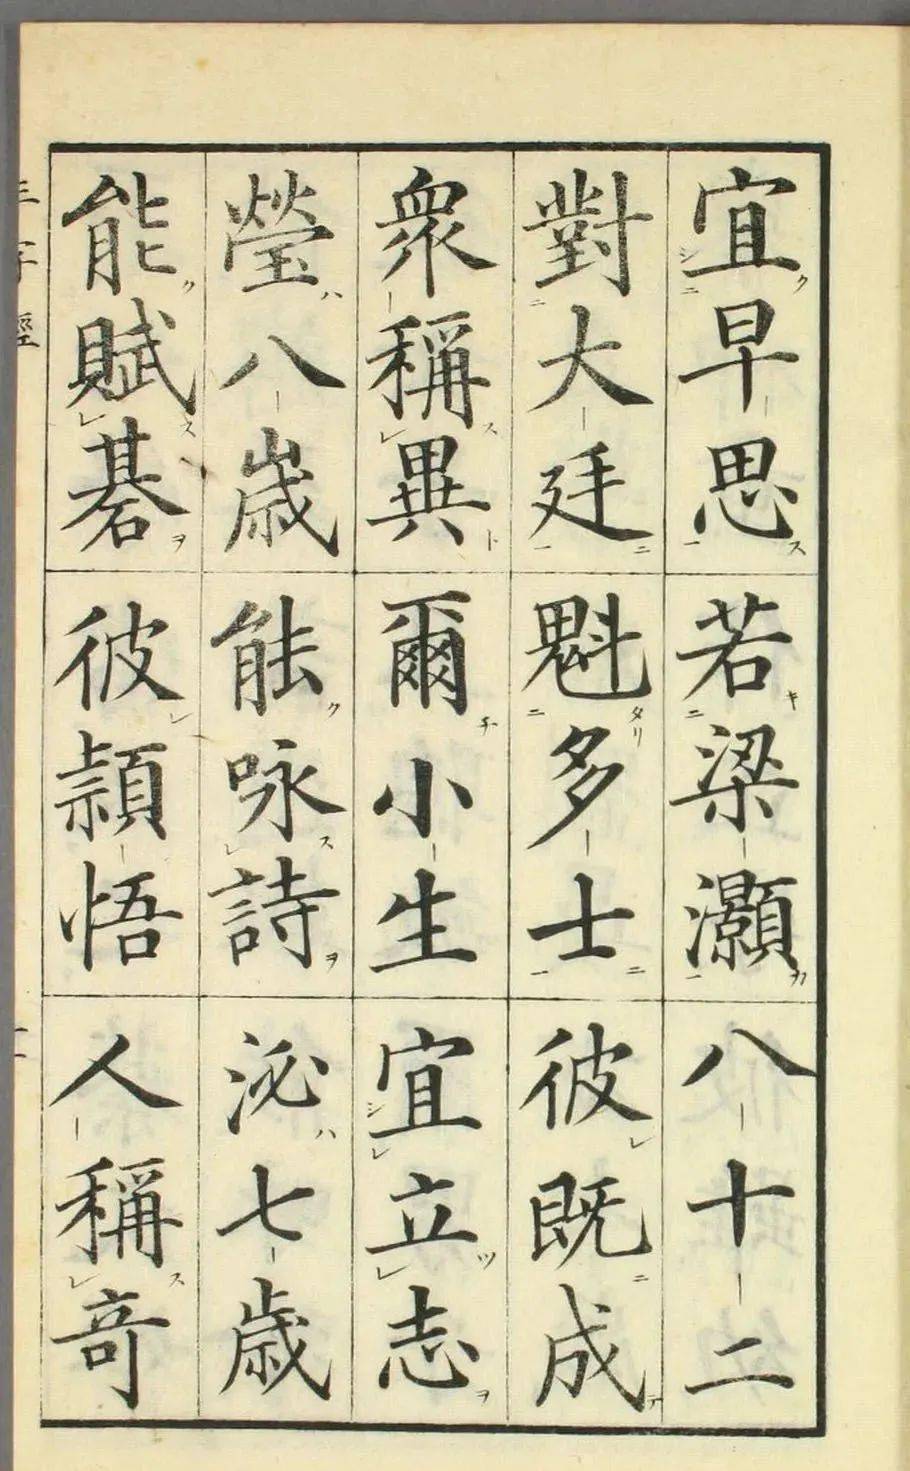 宜早思若梁灝八十二
對大廷魁多士彼既成
衆稱異爾小生宜立志
瑩八嵗能咏詩泌七歳
能賦碁彼頴悟人稱竒
三字經